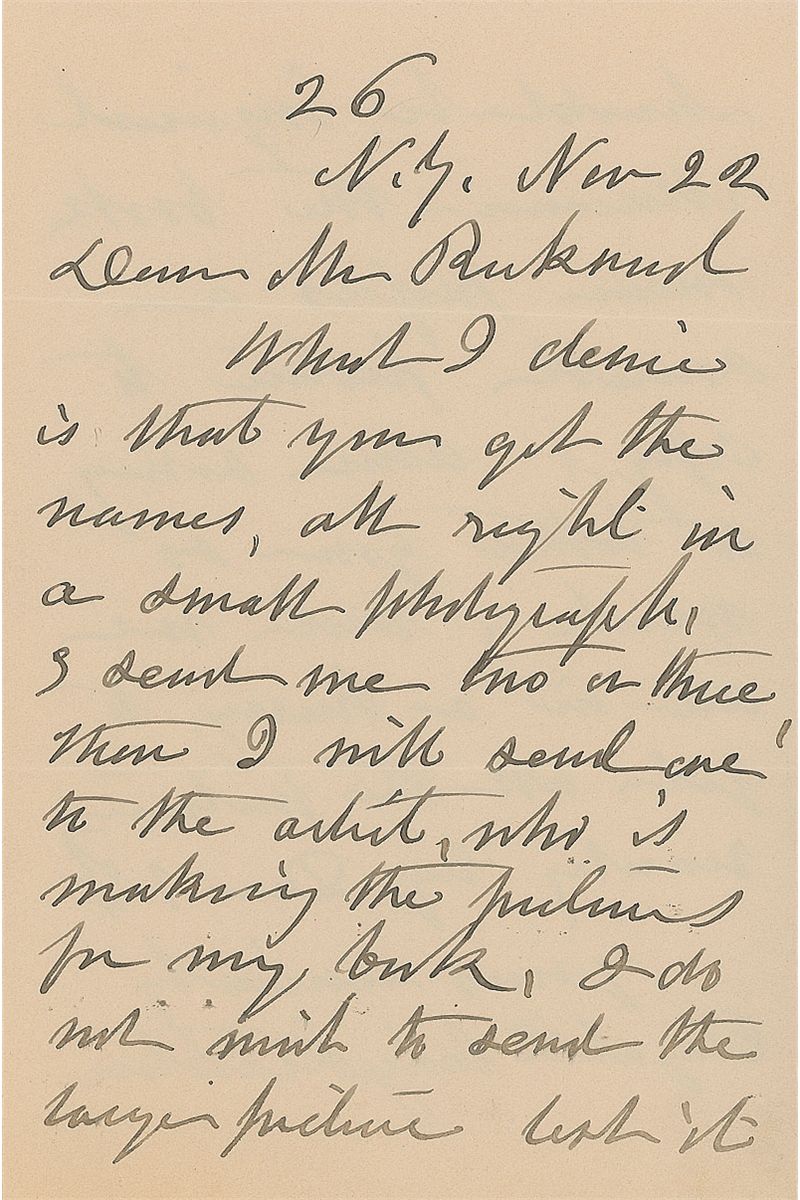 26
N.Y. Nov 22
Dear Mr
What I desire
is that you get the
names, all right in
a small photograph,
& send me two or three,
then I will send one
to the artist, who is
making the pictures
for my book, I do
not wish to send the
large picture lest it